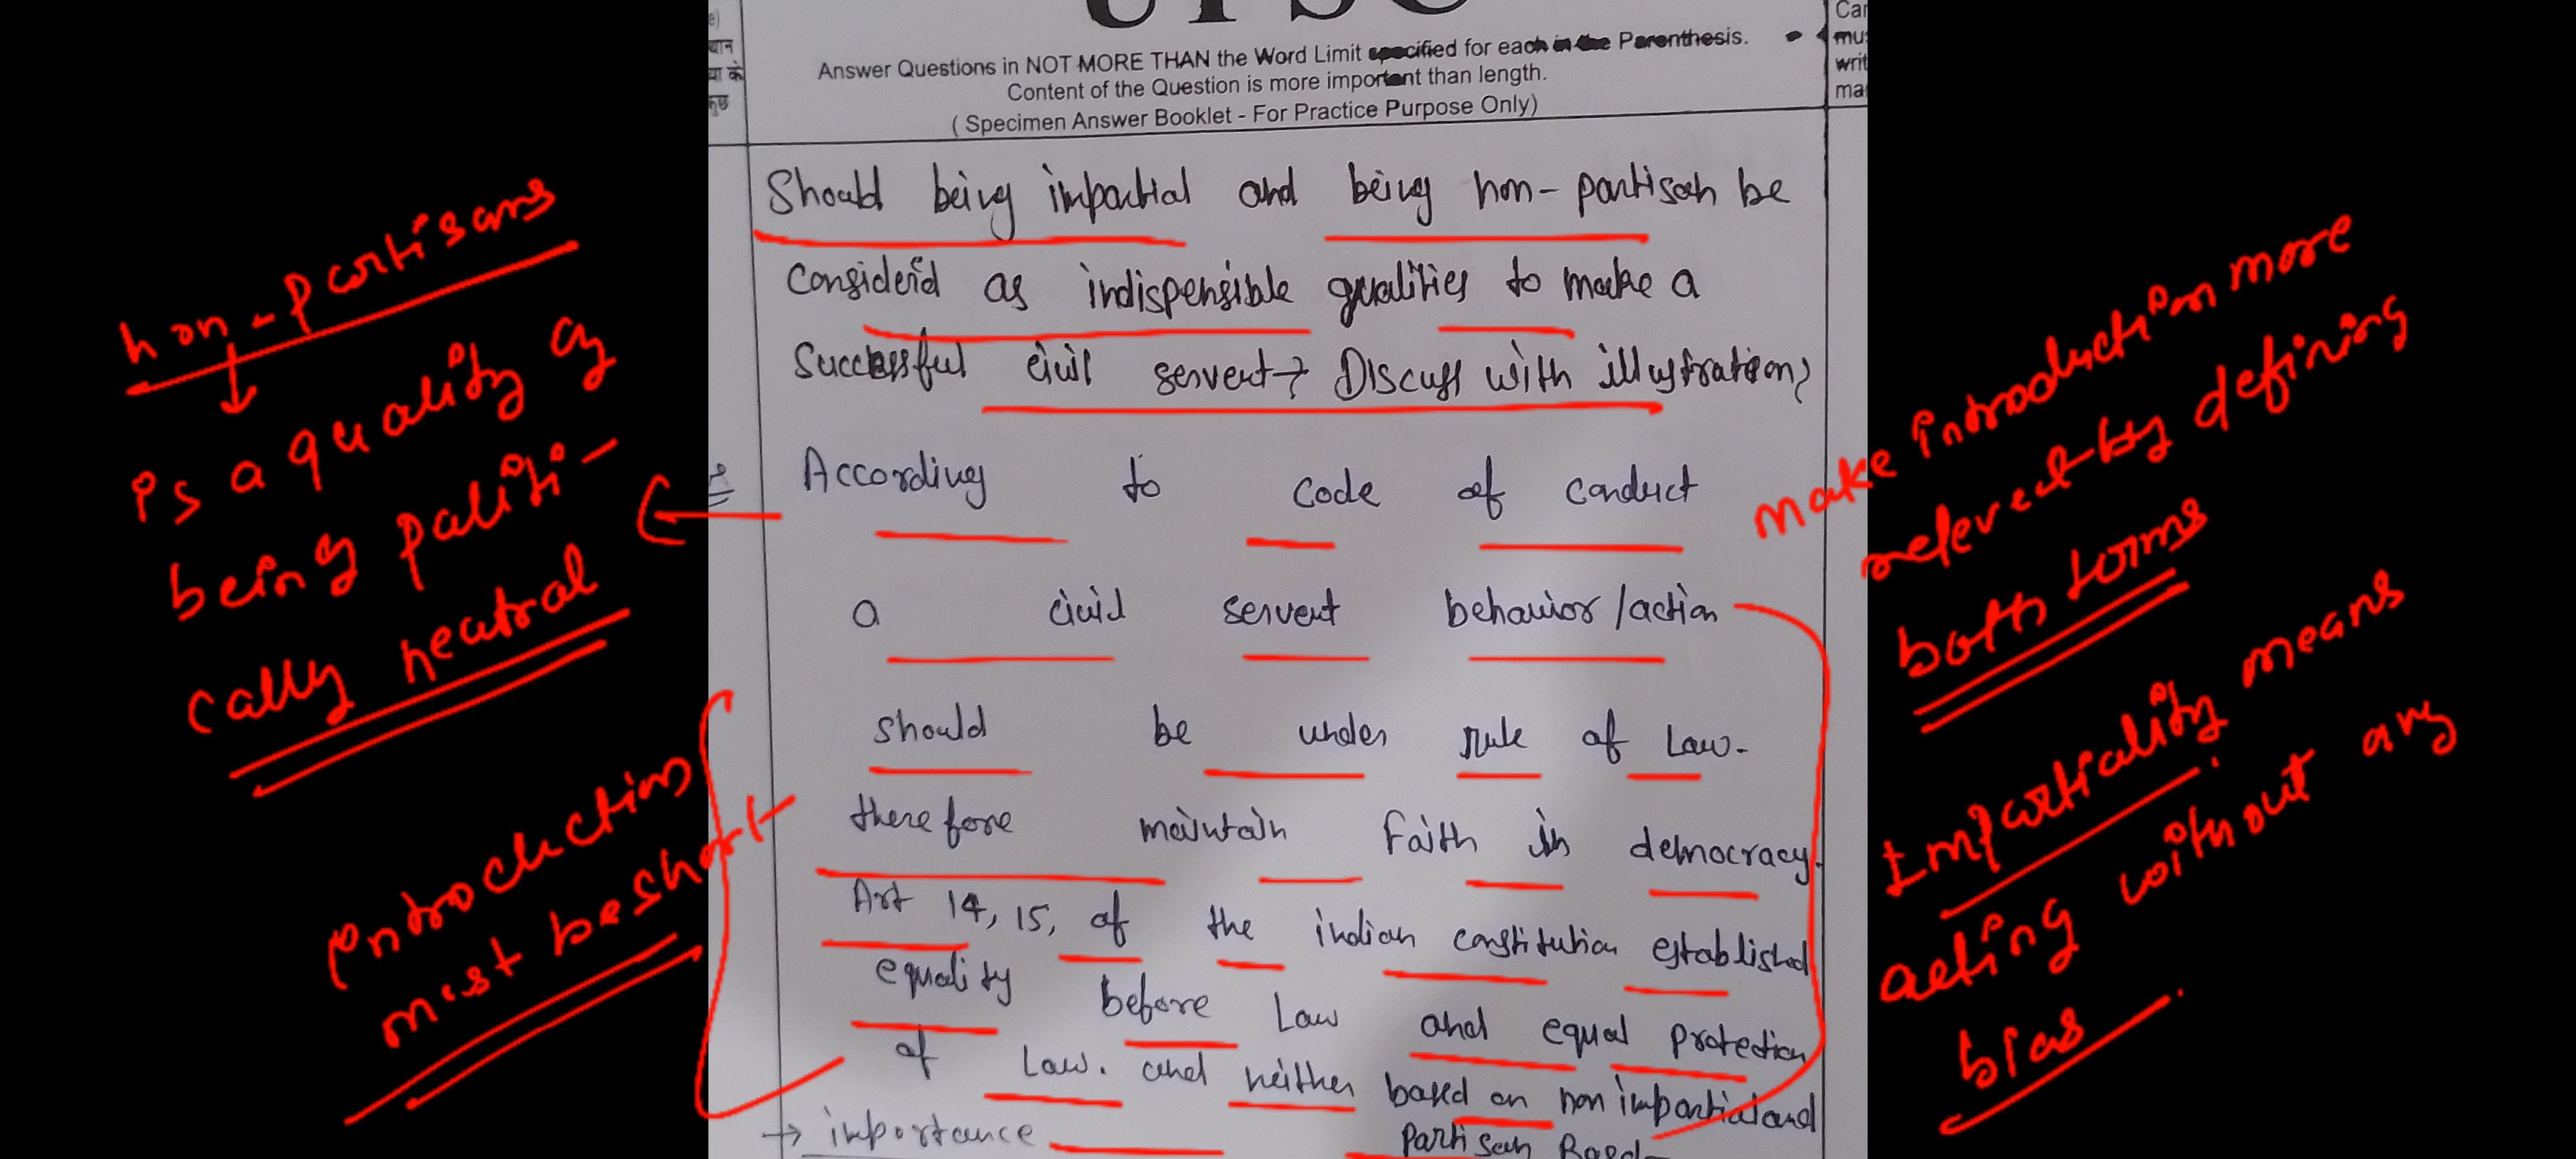 UPSC
Answer Questions in NOT MORE THAN the Word Limit specified for each in the Parenthesis.
Content of the Question is more important than length.
( Specimen Answer Booklet - For Practice Purpose Only)
Should being impartial and being non-partisan be
Considerd as indispensible qualities to make a
Successful civil servent? Discuss with illustration?
According to code of conduct
a civil servent behavior/action
should be under rule of Law.
therefore maintain Faith in democracy.
Art 14, 15, of the indian constitution established
equality before Law and equal protection
of Law. and neither based on non impartial and
→ importance partisan Based
non-partisans
↓
is a quality of
being politi-
cally neutral
introduction
must be short
make introduction more
relevent by defining
both terms
Impartiality means
acting without any
bias.
e)
यान
या के
कुछ
Can
mus
writ
ma